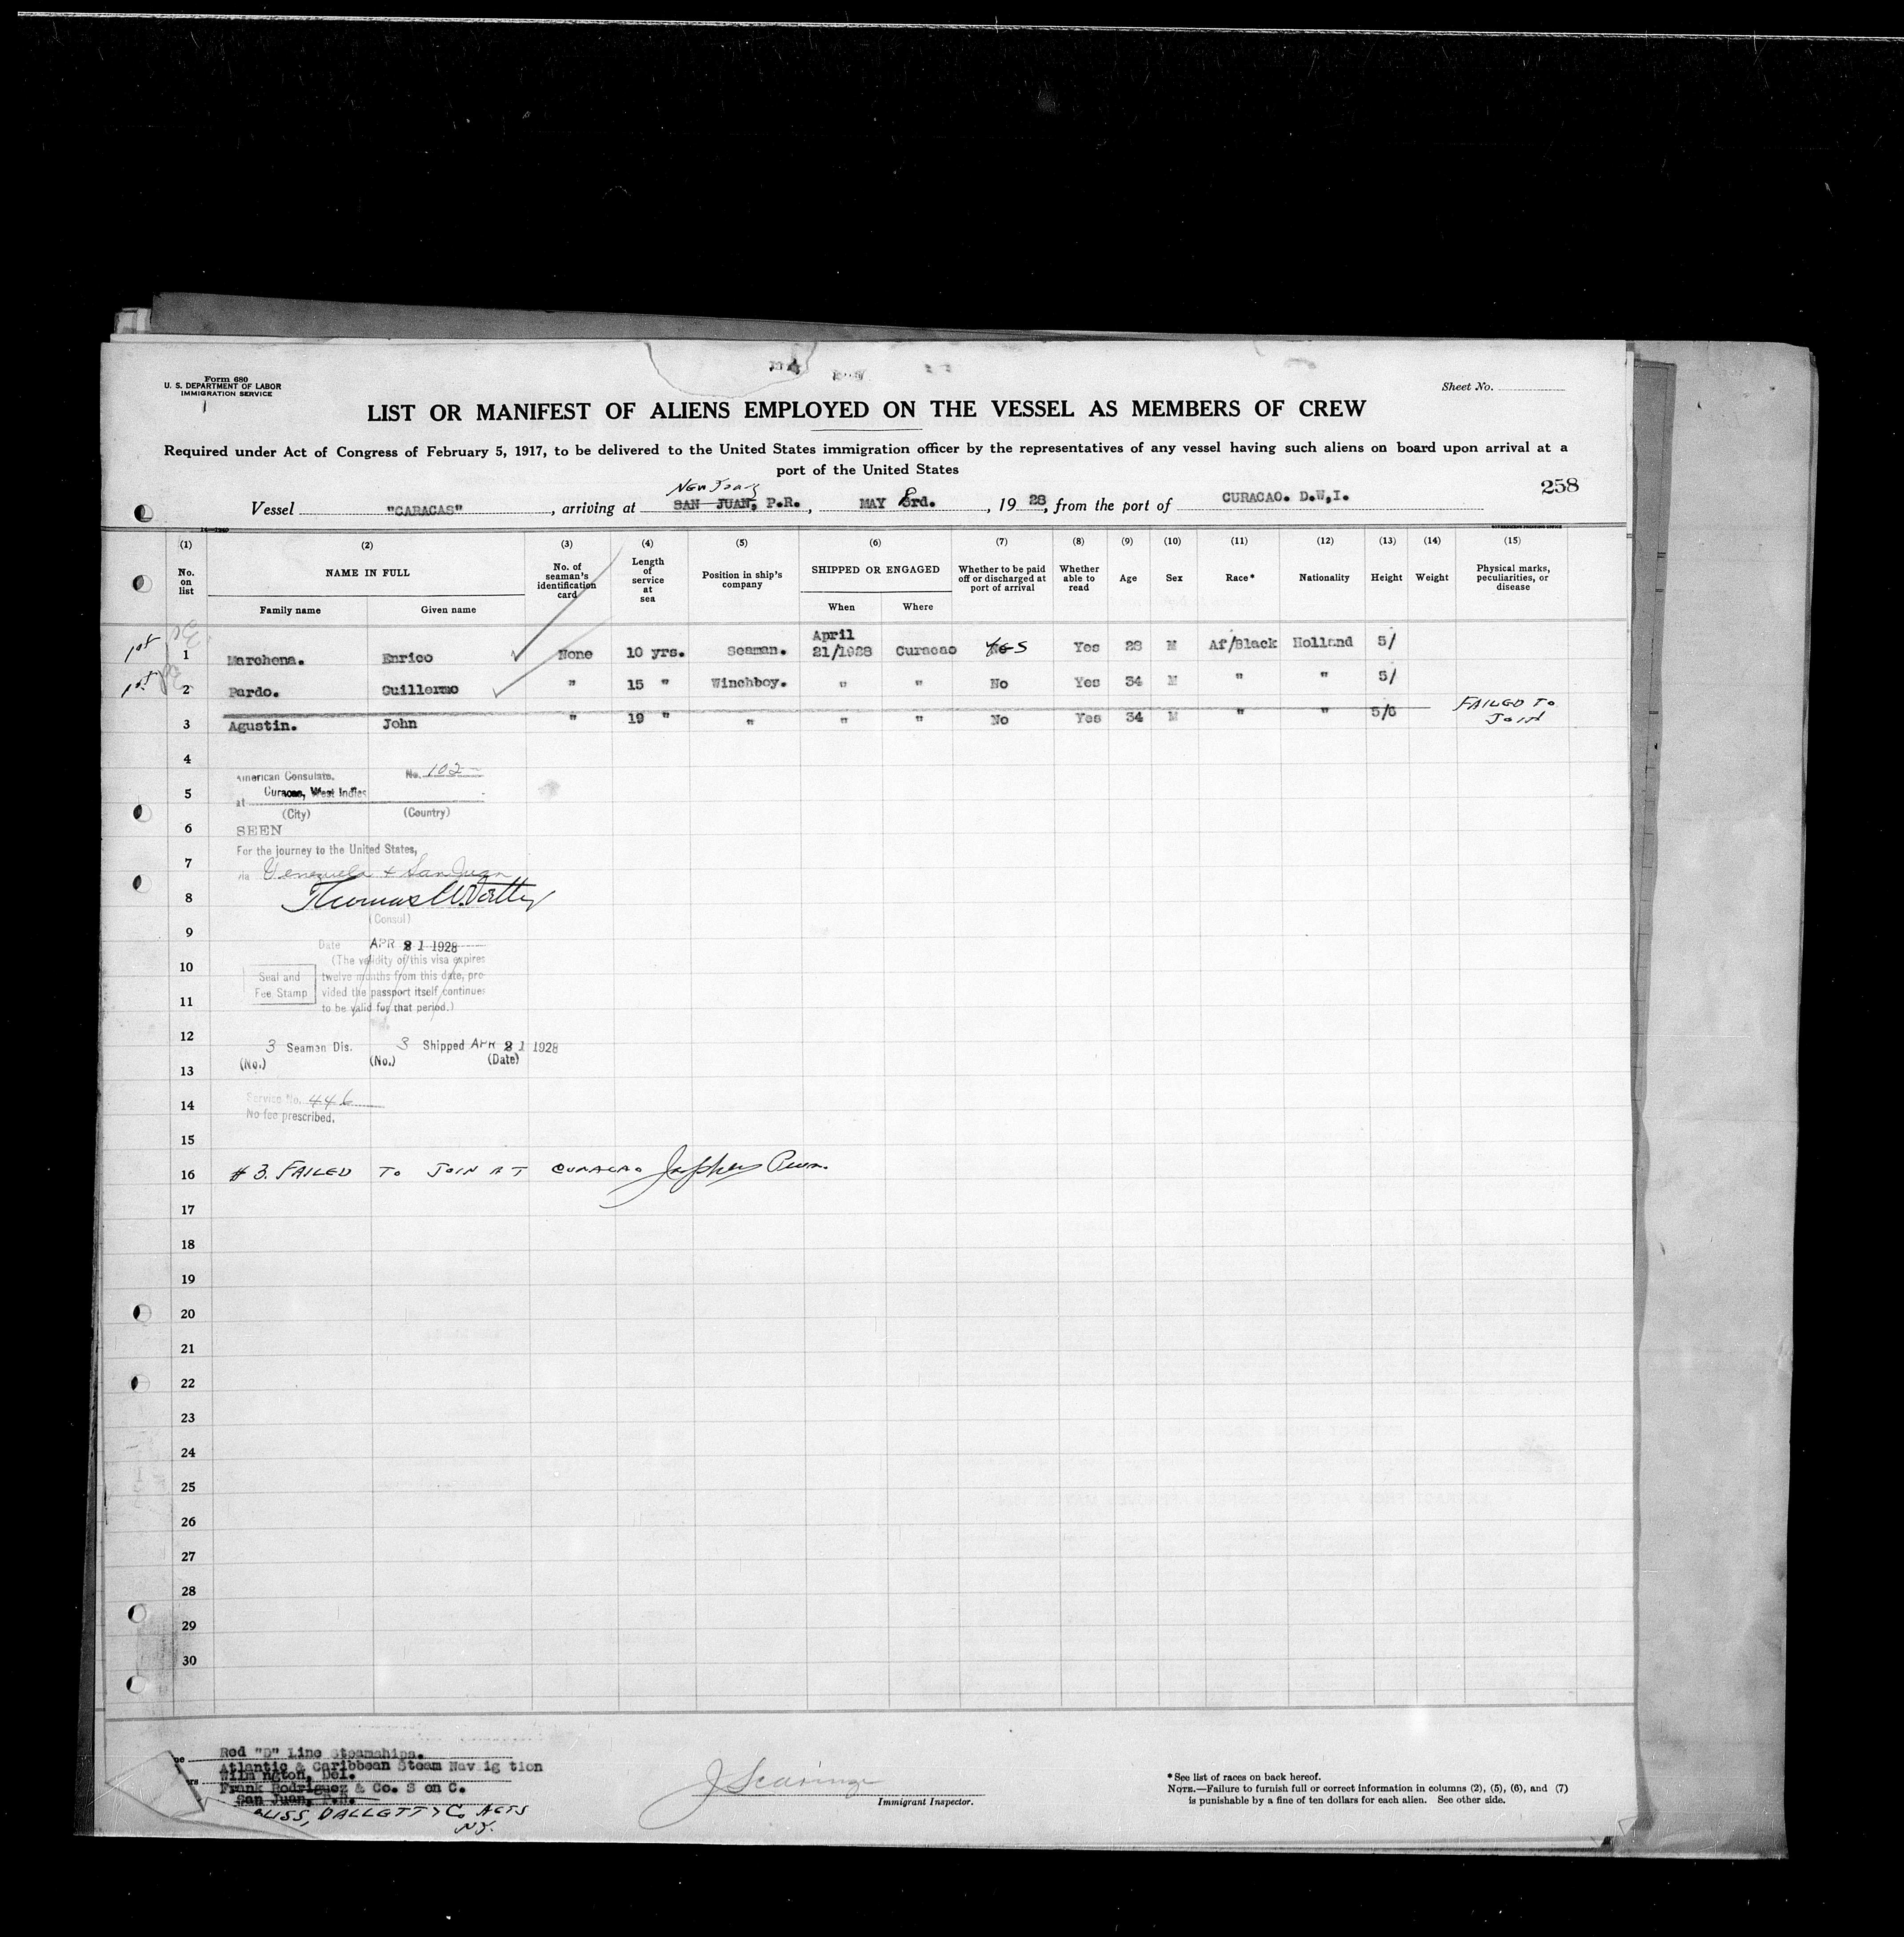 Form 680
U. S. DEPARTMENT OF LABOR
IMMIGRATION SERVICE
Sheet No.
LIST OR MANIFEST OF ALIENS EMPLOYED ON THE VESSEL AS MEMBERS OF CREW
Required under Act of Congress of February 5, 1917, to be delivered to the United States immigration officer by the representatives of any vessel having such aliens on board upon arrival at a
port of the United States
258
Vessel "CARACAS", arriving at SAN JUAN, P.R., MAY 8rd., 1928, from the port of CURACAO. D.W.I.
(1) (2) (3) (4) (5) (6) (7) (8) (9) (10) (11) (12) (13) (14) (15)
No. on list NAME IN FULL No. of seaman's identification card Length of service at sea Position in ship's company SHIPPED OR ENGAGED Whether to be paid off or discharged at port of arrival Whether able to read Age Sex Race* Nationality Height Weight Physical marks, peculiarities, or disease
Family name Given name When Where
1st 1 Marchena. Enrico None 10 yrs. Seaman. April 21/1928 Curacao YES Yes 28 M Af/Black Holland 5/
1st 2 Pardo. Guillermo " 15 " Winchboy. " " No Yes 34 M " " 5/
3 Agustin. John " 19 " " " " No Yes 34 M " " 5/6 FAILED TO JOIN
4
American Consulate, No. 102
5
at Curacao, West Indies
(City) (Country)
6
SEEN
For the journey to the United States,
7
via Venezuela & San Juan
8
(Consul)
9
Date APR 21 1928
(The validity of this visa expires
10
Seal and Fee Stamp
twelve months from this date, pro-
vided the passport itself continues
11
to be valid for that period.)
12
3 Seamen Dis. 3 Shipped APR 21 1928
(No.) (No.) (Date)
13
14
Service No. 446
No fee prescribed.
15
16 #3. FAILED TO JOIN AT CURACAO
17
18
19
20
21
22
23
24
25
26
27
28
29
30
Red "D" Line Steamships.
Atlantic & Caribbean Steam Navig tion
Wilmington, Del.
Frank Rodriguez & Co. S on C.
San Juan, P.R.
BLISS, DALLETT & Co AGTS
NY.
Immigrant Inspector.
*See list of races on back hereof.
NOTE.—Failure to furnish full or correct information in columns (2), (5), (6), and (7)
is punishable by a fine of ten dollars for each alien. See other side.